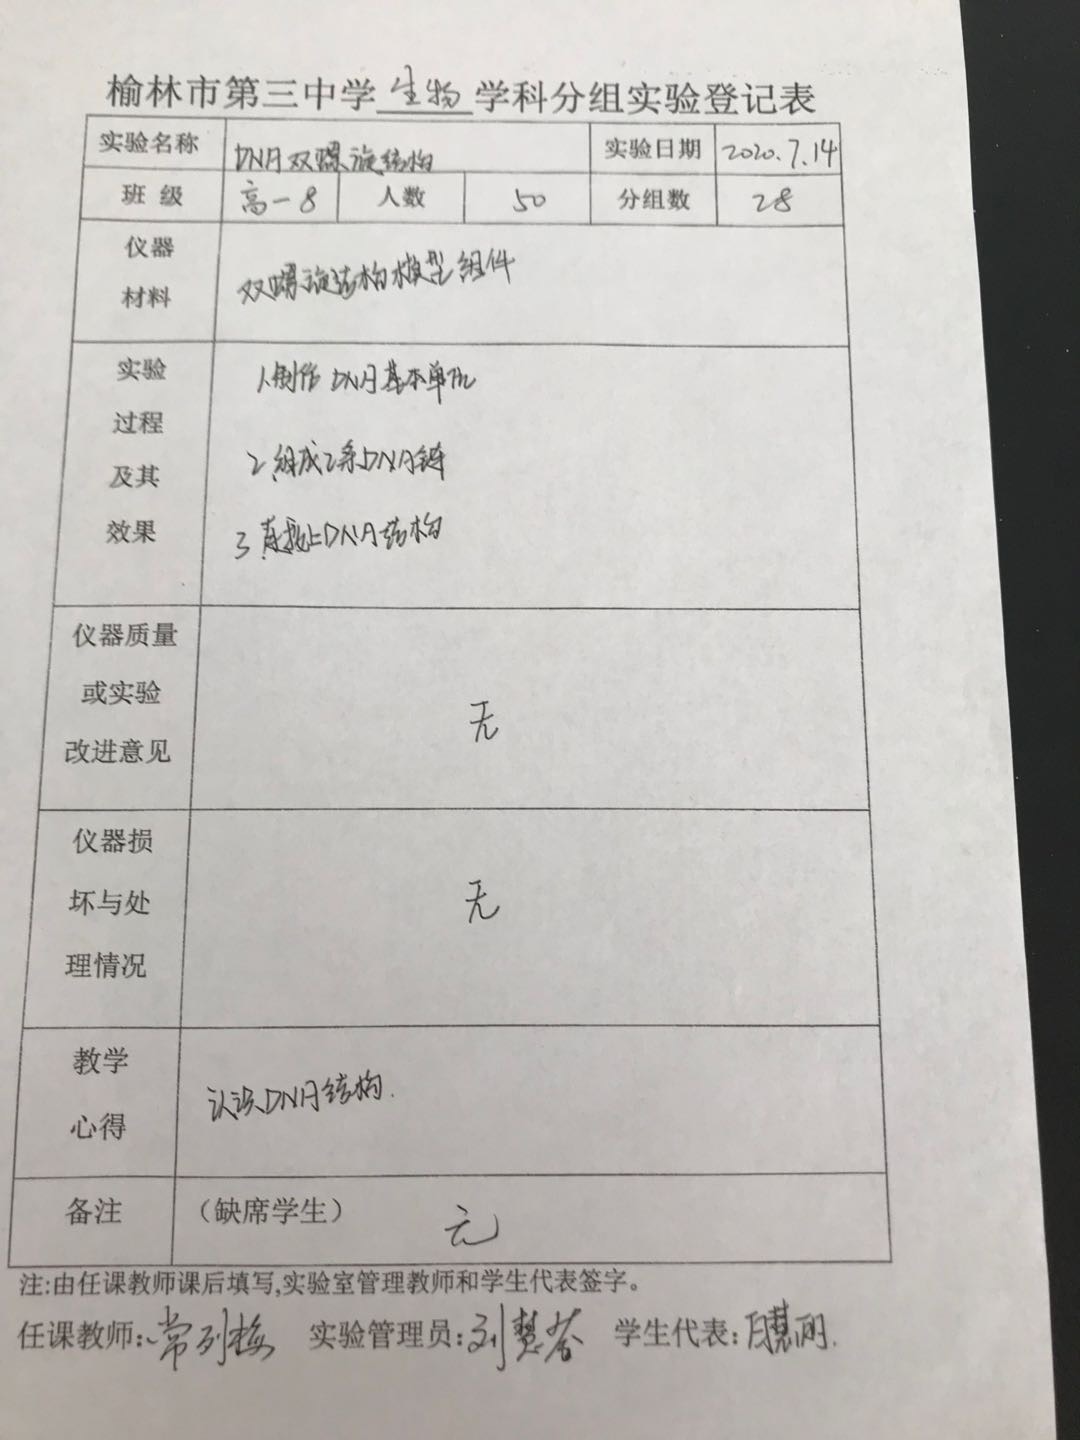 榆林市第三中学生物学科分组实验登记表
实验名称 DNA双螺旋结构 实验日期 2020.7.14
班级 高一8 人数 50 分组数 28
仪器
材料
双螺旋结构模型组件
实验
过程
及其
效果
1.制作DNA基本单位
2.组成2条DNA链
3.连接上DNA结构
仪器质量
或实验
改进意见
无
仪器损
坏与处
理情况
无
教学
心得
认识DNA结构.
备注 (缺席学生) 无
注:由任课教师课后填写,实验室管理教师和学生代表签字。
任课教师: 常列梅 实验管理员: 刘慧 学生代表: